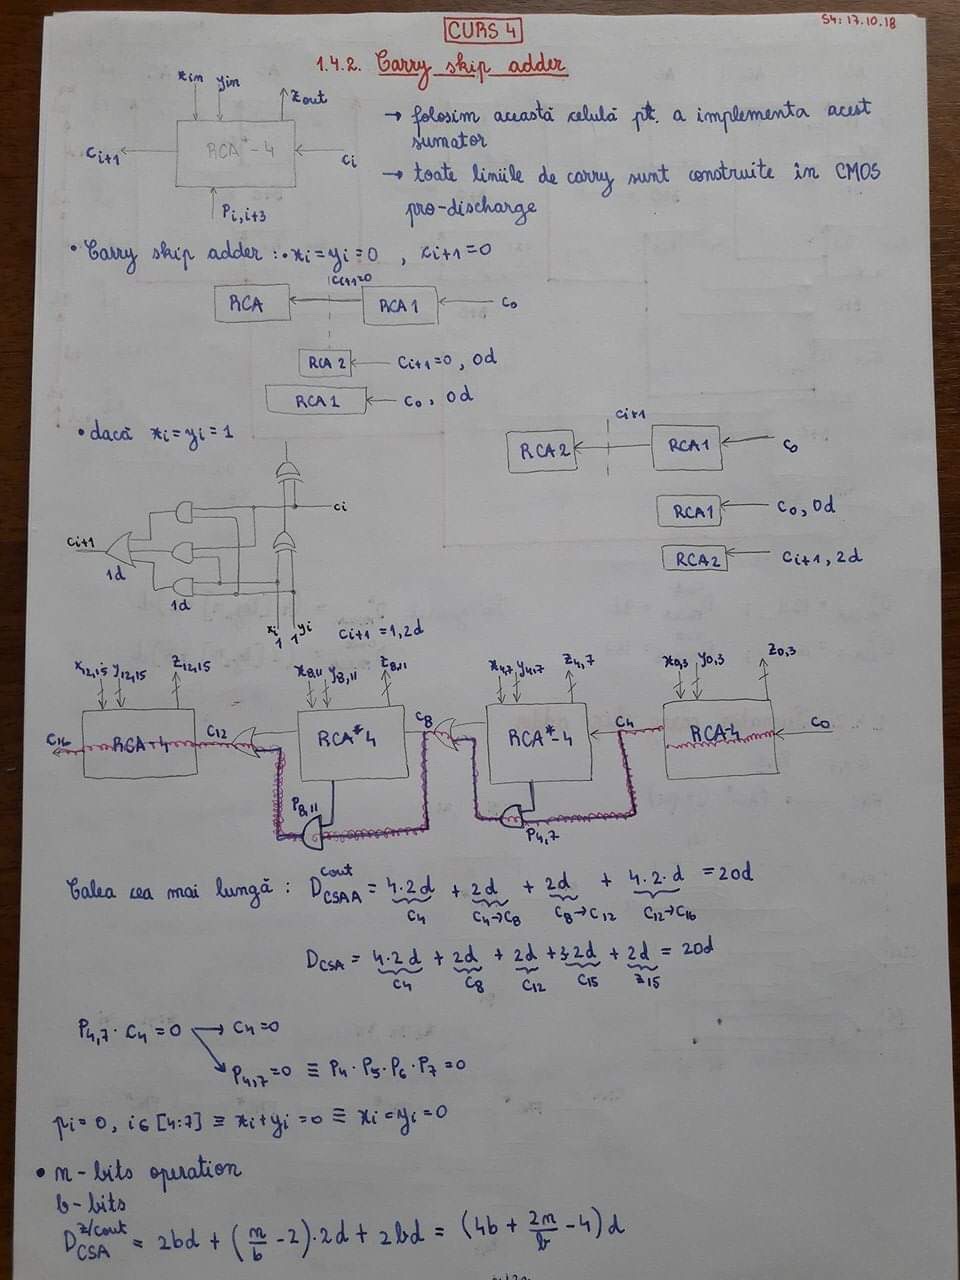 CURS 4
S4: 17.10.18
1.4.2. Carry skip adder
xin yin zout
RCA*-4
ci+1 ci
Pi,i+3
→ folosim această celulă pt. a implementa acest
sumator
→ toate liniile de carry sunt construite în CMOS
pro-discharge
• Carry skip adder : • xi = yi = 0 , ci+1 = 0
ci+1=0
RCA RCA1 c0
RCA 2 ci+1=0, 0d
RCA1 c0, 0d
• dacă xi = yi = 1
ci+1
RCA2 RCA1 c0
RCA1 c0, 0d
RCA2 ci+1, 2d
ci
ci+1
1d
1d
xi yi
1 1
ci+1 = 1, 2d
x12,15 y12,15 z12,15 x8,11 y8,11 z8,11 x4,7 y4,7 z4,7 x0,3 y0,3 z0,3
c16 RCA-4 c12 RCA*4 c8 RCA*-4 c4 RCA-4 c0
P8,11 P4,7
Calea cea mai lungă : D CSAA cout = 4·2d + 2d + 2d + 4·2·d = 20d
c4 c4→c8 c8→c12 c12→c16
DCSA = 4·2d + 2d + 2d + 3·2d + 2d = 20d
c4 c8 c12 c15 z15
P4,7 · c4 = 0 → c4 = 0
P4,7 = 0 ≡ P4 · P5 · P6 · P7 = 0
pi = 0, i∈[4:7] ≡ xi + yi = 0 ≡ xi = yi = 0
• n - bits operation
b - bits
D CSA z/cout = 2bd + (n/b - 2)·2d + 2bd = (4b + 2n/b - 4) d